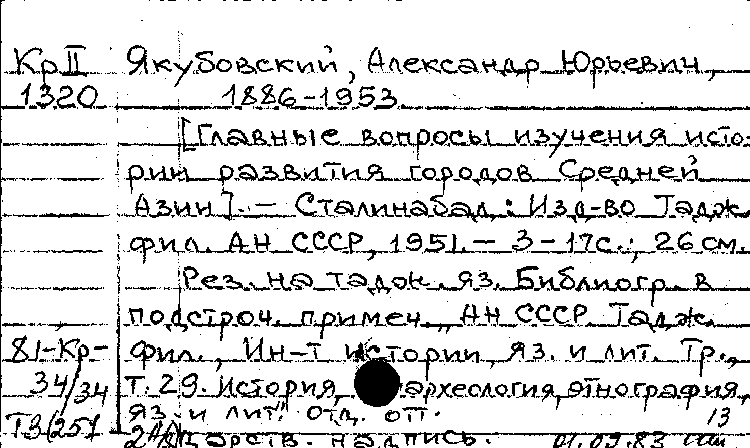 Кр II Якубовский, Александр Юрьевич,
1320 1886-1953
[Главные вопросы изучения исто-
рии развития городов Средней
Азии]. — Сталинабад: Изд-во Тадж.
фил. АН СССР, 1951. — 3-17с.; 26 см.
Рез. на тадж. яз. Библиогр. в
подстроч. примеч., АН СССР. Тадж.
81-Кр- фил., Ин-т истории, яз. и лит. Тр.,
34/34 Т. 29. История, археология, этнография,
яз. и лит." отд. отт. 13
Т3(25)
дарств. надпись.